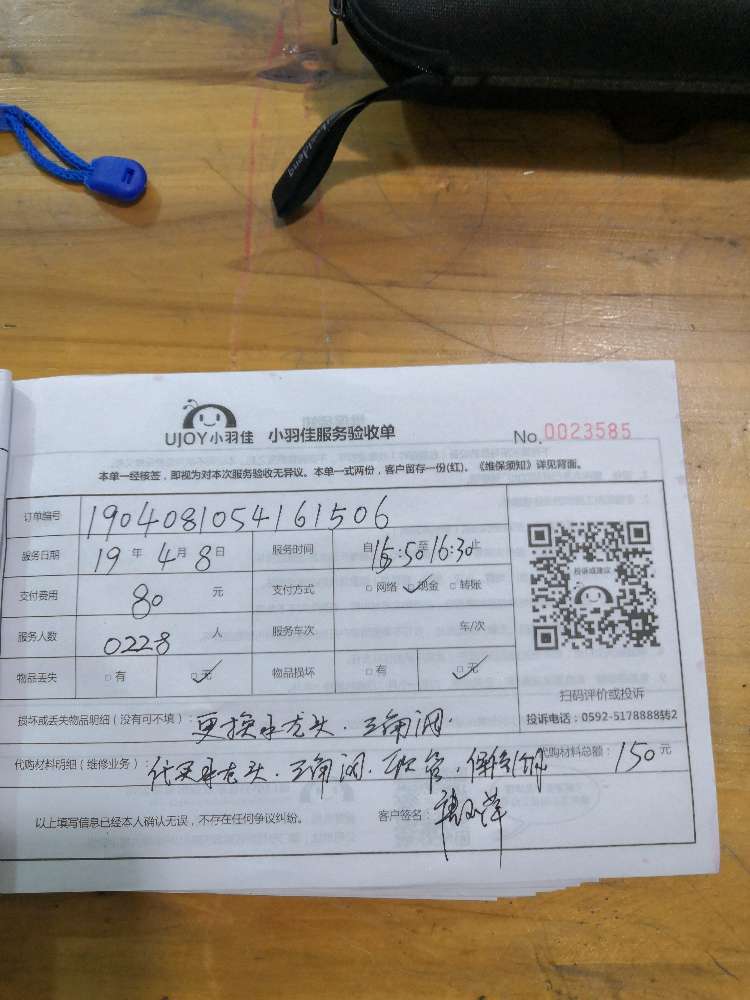 UJOY小羽佳 小羽佳服务验收单 No.0023585
本单一经核签，即视为对本次服务验收无异议。本单一式两份，客户留存一份(红)、《维保须知》详见背面。
订单编号 1904081054161506
服务日期 19年4月8日 服务时间 自15:50至16:30止
支付费用 80元 支付方式 □网络 □现金 □转账
服务人数 0228人 服务车次 车/次
物品丢失 □有 □无 物品损坏 □有 □无
投诉或建议
扫码评价或投诉
投诉电话：0592-5178888转2
损坏或丢失物品明细（没有可不填）：更换水龙头.三角阀.
代购材料明细（维修业务）：代买水龙头.三角阀.软管. 代购材料总额：150元
以上填写信息已经本人确认无误，不存在任何争议纠纷。 客户签名：